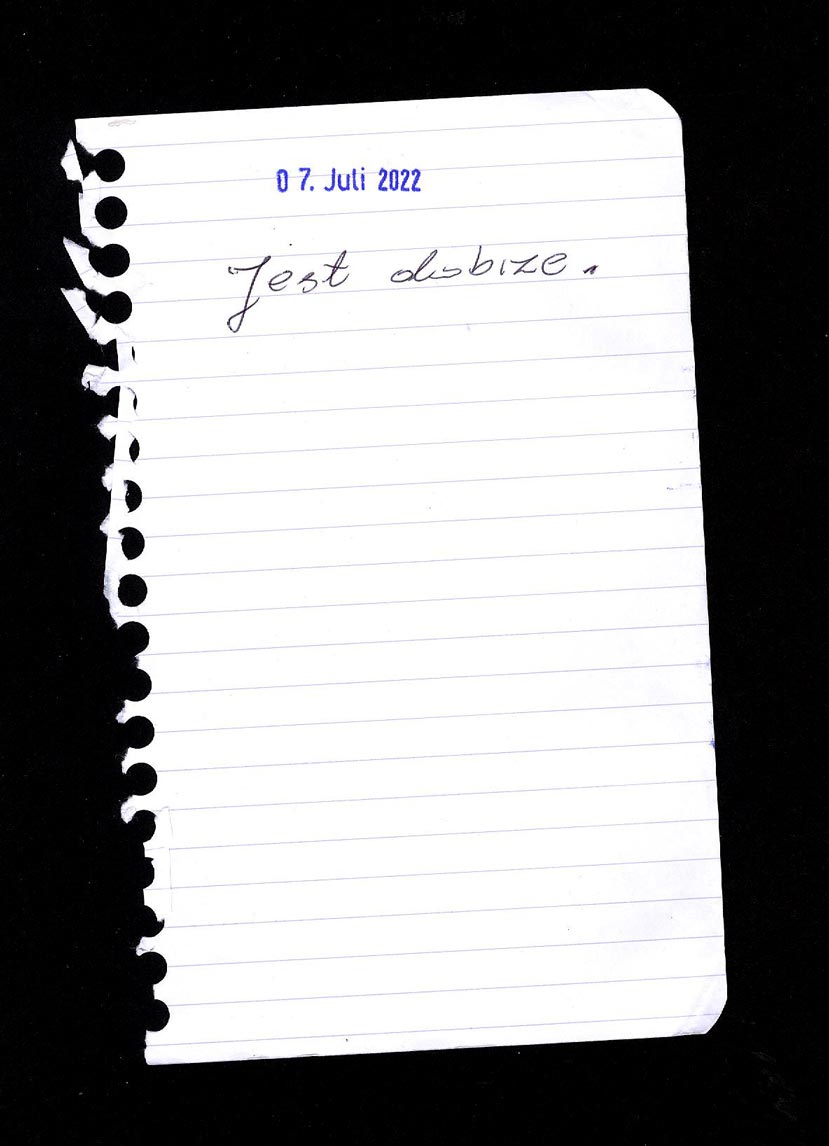 07. Juli 2022
Jest dobrze.